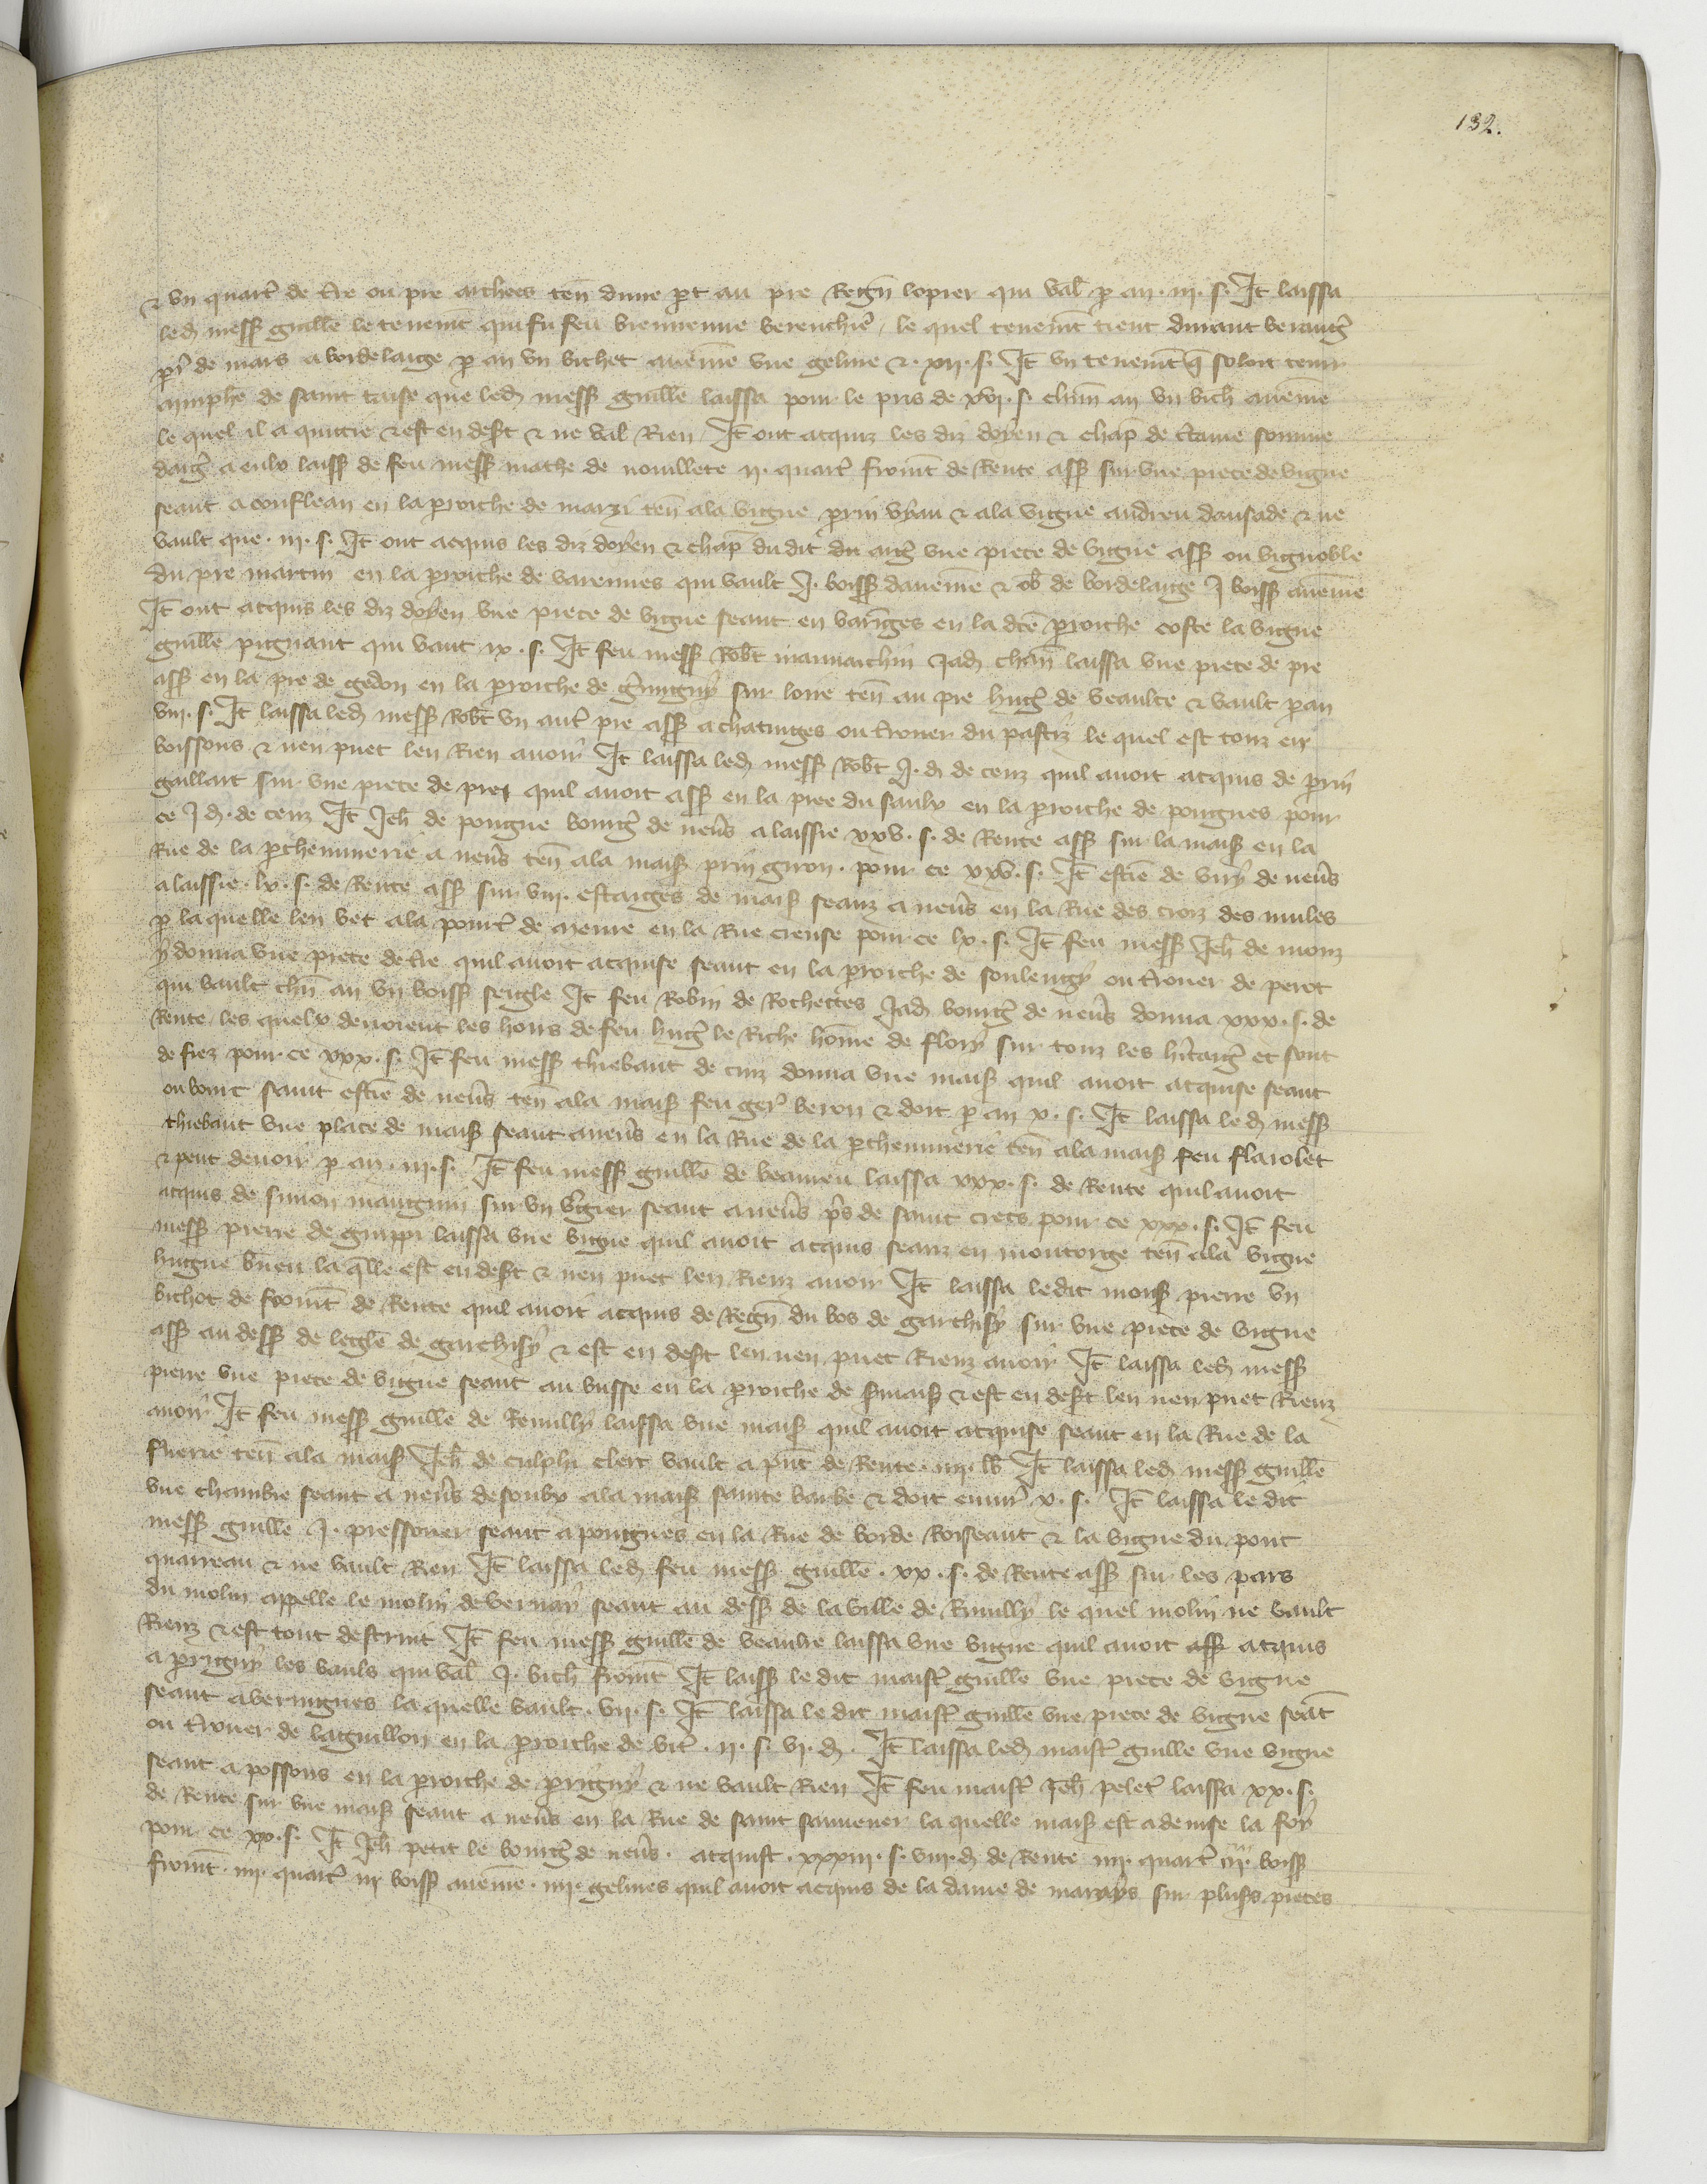 132.
& vn quart̾ de t̾re ou pre archees ten̄ dune p̱t au pre Regn̄ lopier qui val̄ p̱ an .iij. s. It̄ laissa
led̾ mess̾ guill̄e le tenemt qui fu feu viennenne berenchier / le quel tenemt̄ tient durant berung̾
p̱r de mars a bordelaige p̱ an vn bichet aueine vne geline & .xij. s. It̄ vn tenemt̄ q̄ soloit tenir
de saint taise que led̾ mess̾ guill̄e laissa pour le pris de xvj. s. chūn an vn bich̄ aueine
le quel il a quittie & est en des̾t & ne val Rien / It̄ ont acquiz les diz doyen & chap̄ de
a eulx laiss̾ de feu mess̾ mathe de nouillete ij. quart̾ fromt̄ de Rente ass̾ sur vne piece de vigne
seant a conflean en la p̱roiche de marzi ten̄ ala vigne p̱rin & ala vigne andreu dansade & ne
vault que .iij. s. It̄ ont acquis les diz doyen & chap̄ du dit du arg̾ vne piece de vigne ass̾ ou vignoble
du pre martin en la p̱roiche de varennes qui vault J. boiss̾ daueine & ob̄ de bordelaige J boiss̾ aueine
It̄ ont acquis les diz doyen vne piece de vigne seant en var̄nges en la dc̄e p̱roiche coste la vigne
guill̄e pignant qui vaut ix. s. It̄ feu mess̾ Rob̄t Jad̾ chan̄ laissa vne piece de pre
ass̾ en la pre de gedon en la p̱roiche de g̾myny sur loire ten̄ au pre hug̾ de veaulce & vault p̱ an
viij. s. It̄ laissa led̾ mess̾ Rob̄t vn aut̾ pre ass̾ a chatinges ou t̾rouer du pastiz le quel est touz en
boissons & nen puet len Rien auoir It̄ laissa led̾ mess̾ Rob̄t J. d̾ de cenz quil auoit acquis de p̱rin
gaillart sur vne piece de pre quil auoit ass̾ en la pree du saulx en la p̱roiche de pougues pour
ce J d̾. de cenz It̄ Jeh̄ de pougue bourg̾ de neu̾s a laissie xxv. s. de Rente ass̾ sur la mais̾ en la
Rue de la p̱chemmerie a neu̾s ten̄ ala mais̾ p̱rin giron. pour ce xxv. s. It̄ estie̅ de viry de neu̾s
a laissie .lx. s. de Rente ass̾ sur viij. estaiges de mais̾ seanz a neu̾s en la Rue des croiz des mules
p̱ laquelle len vet ala port̾ de nieure en la Rue creuse pour ce lx. s. It̄ feu mess̾ Jeh̄ de monz
y donna vne piece de t̾re quil auoit acquise seant en la p̱roiche de soulengy ou t̾rouer de perot
qui vault chūn an vn boiss̾ seigle It̄ feu Robin de Rochettes Jad̾ bourg̾ de neu̾s donna xxx. s. de
Rente les quelx deuoient les hoirs de feu hug̾ le Riche home de flory sur touz les h̾itaig̾ et sont
de fiez pour ce xxx. s. It̄ feu mess̾ thiebaut de cruz donna vne mais̾ quil auoit acquise seant
ou bourc saint estie̅ de neu̾s ten̄ ala mais̾ feu ger̾ veron & doit p̱ an x. s. It̄ laissa led̾ mess̾
thiebaut vne place de mais̾ seant a neu̾s en la Rue de la p̱chemmerie ten̄ ala mais̾ feu flaiolet
& peut deuoir p̱ an .iij. s. It̄ feu mess̾ guill̄e de beaumeu laissa xxx. s. de Rente quil auoit
acquis de simon mauguin sur vn v̾gier seant a neu̾s p̾s de saint pour ce xxx. s. It̄ feu
mess̾ pierre de giuppi laissa vne vigne quil auoit acquis seanz en montorge ten̄ ala vigne
hugue la q̄lle est en des̾t & nen puet len Rienz auoir It̄ laissa ledit mons̾ pierre vn
bichet de fromt̄ de Rente quil auoit acquis de Regn̄ du bos de garchisy sur vne piece de vigne
ass̾ au dess̾ de legl̄e de garchisy & est en des̾t len nen puet Rienz auoir It̄ laissa led̾ mess̾
pierre vne piece de vigne seant au vusse en la p̱roiche de & est en des̾t len nen puet Rienz
auoir It̄ feu mess̾ guill̄e de Remilly laissa vne mais̾ quil auoit acquise seant en la Rue de la
ten̄ ala mais̾ Jeh̄ de culphi clerc vault a p̱n̄t de Rente .iiij. lb̾ It̄ laissa led̾ mess̾ guill̄e
vne chambre seant a neu̾s desoubz ala mais̾ sainte barbe & doit x. s. It̄ laissa le dit
mess̾ guill̄e J. pressouer seant a pougues en la Rue de borde boiseant & la vigne du pont
quarreau & ne vault Rien It̄ laissa led̾ feu mess̾ guill̄e .xx. s. de Rente ass̾ sur les pars
du molin appelle le molin de vernay seant au dess̾ de la ville de Rimilly le quel molin ne vault
Rienz & est tout destruit It̄ feu mess̾ guill̄e de veaulce laissa vne vigne quil auoit ass̾ acquis
a p̱rigny les vaulx qui val̄ J. bich̄ fromt̄ It̄ laiss̾ le dit maist̾ guill̄e vne piece de vigne
seant a veruignes la quelle vault .vij. s. It̄ laissa le dit maist̾ guill̄e vne piece de vigne seāt
ou t̾rouer de laguillon en la p̱roiche de .ij. s. vj. d̾. It̄ laissa led̾ maist̾ guill̄e vne vigne
seant a possons en la p̱roiche de p̱rigny & ne vault Rien It̄ feu maist̾ Jeh̄ pelet̾ laissa xx. s.
de Rente sur vne mais̾ seant a neu̾s en la Rue de saint sauueur la quelle mais̾ est a denise la foy
pour ce xx. s. It̄ Jeh̄ petit le bourg̾ de neu̾s. acquist .xxxiij. s. viij. d̾ de Rente iiij. quart̾ iij. boiss̾
fromt̄ .iiij. quart̾ iij boiss̾ aueine .iiij. gelines quil auoit acquis de la dame de marays sur plus̾s pieces